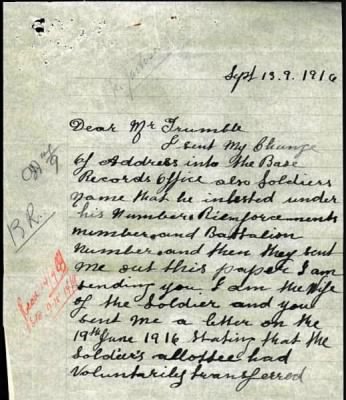 Sept 13.9.1916
Dear Mr Trumble
I sent My Change
Of Address into The Base
Records Office also Soldiers
Name that he inlested under
his Number & Rienforcements
number and Battalion
Number and then they sent
Me out this paper I am
sending you. I am the Wife
of the Soldier and you
sent me a letter on the
19th June 1916 stating that the
Soldier's allottee had
Voluntarily transferred
B.R.